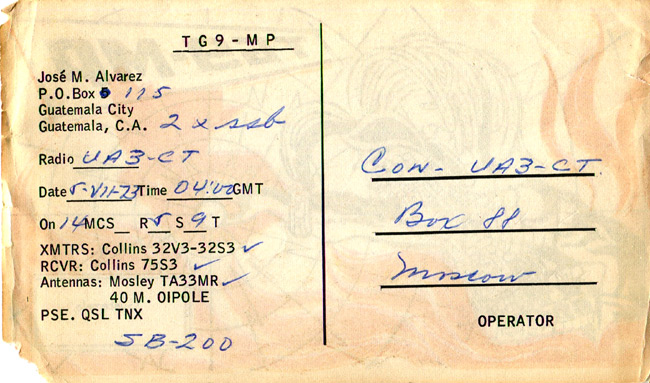 TG9-MP
José M. Alvarez
P.O.Box 115
Guatemala City
Guatemala, C.A. 2 x ssb
Radio UA3-CT
Date 5-VII-73 Time 04:00 GMT
On 14 MCS R 5 S 9 T
XMTRS: Collins 32V3-32S3 ✓
RCVR: Collins 75S3 ✓
Antennas: Mosley TA33MR ✓
40 M. OIPOLE
PSE. QSL TNX
SB-200
Con- UA3-CT
Box 88
Moscow
OPERATOR